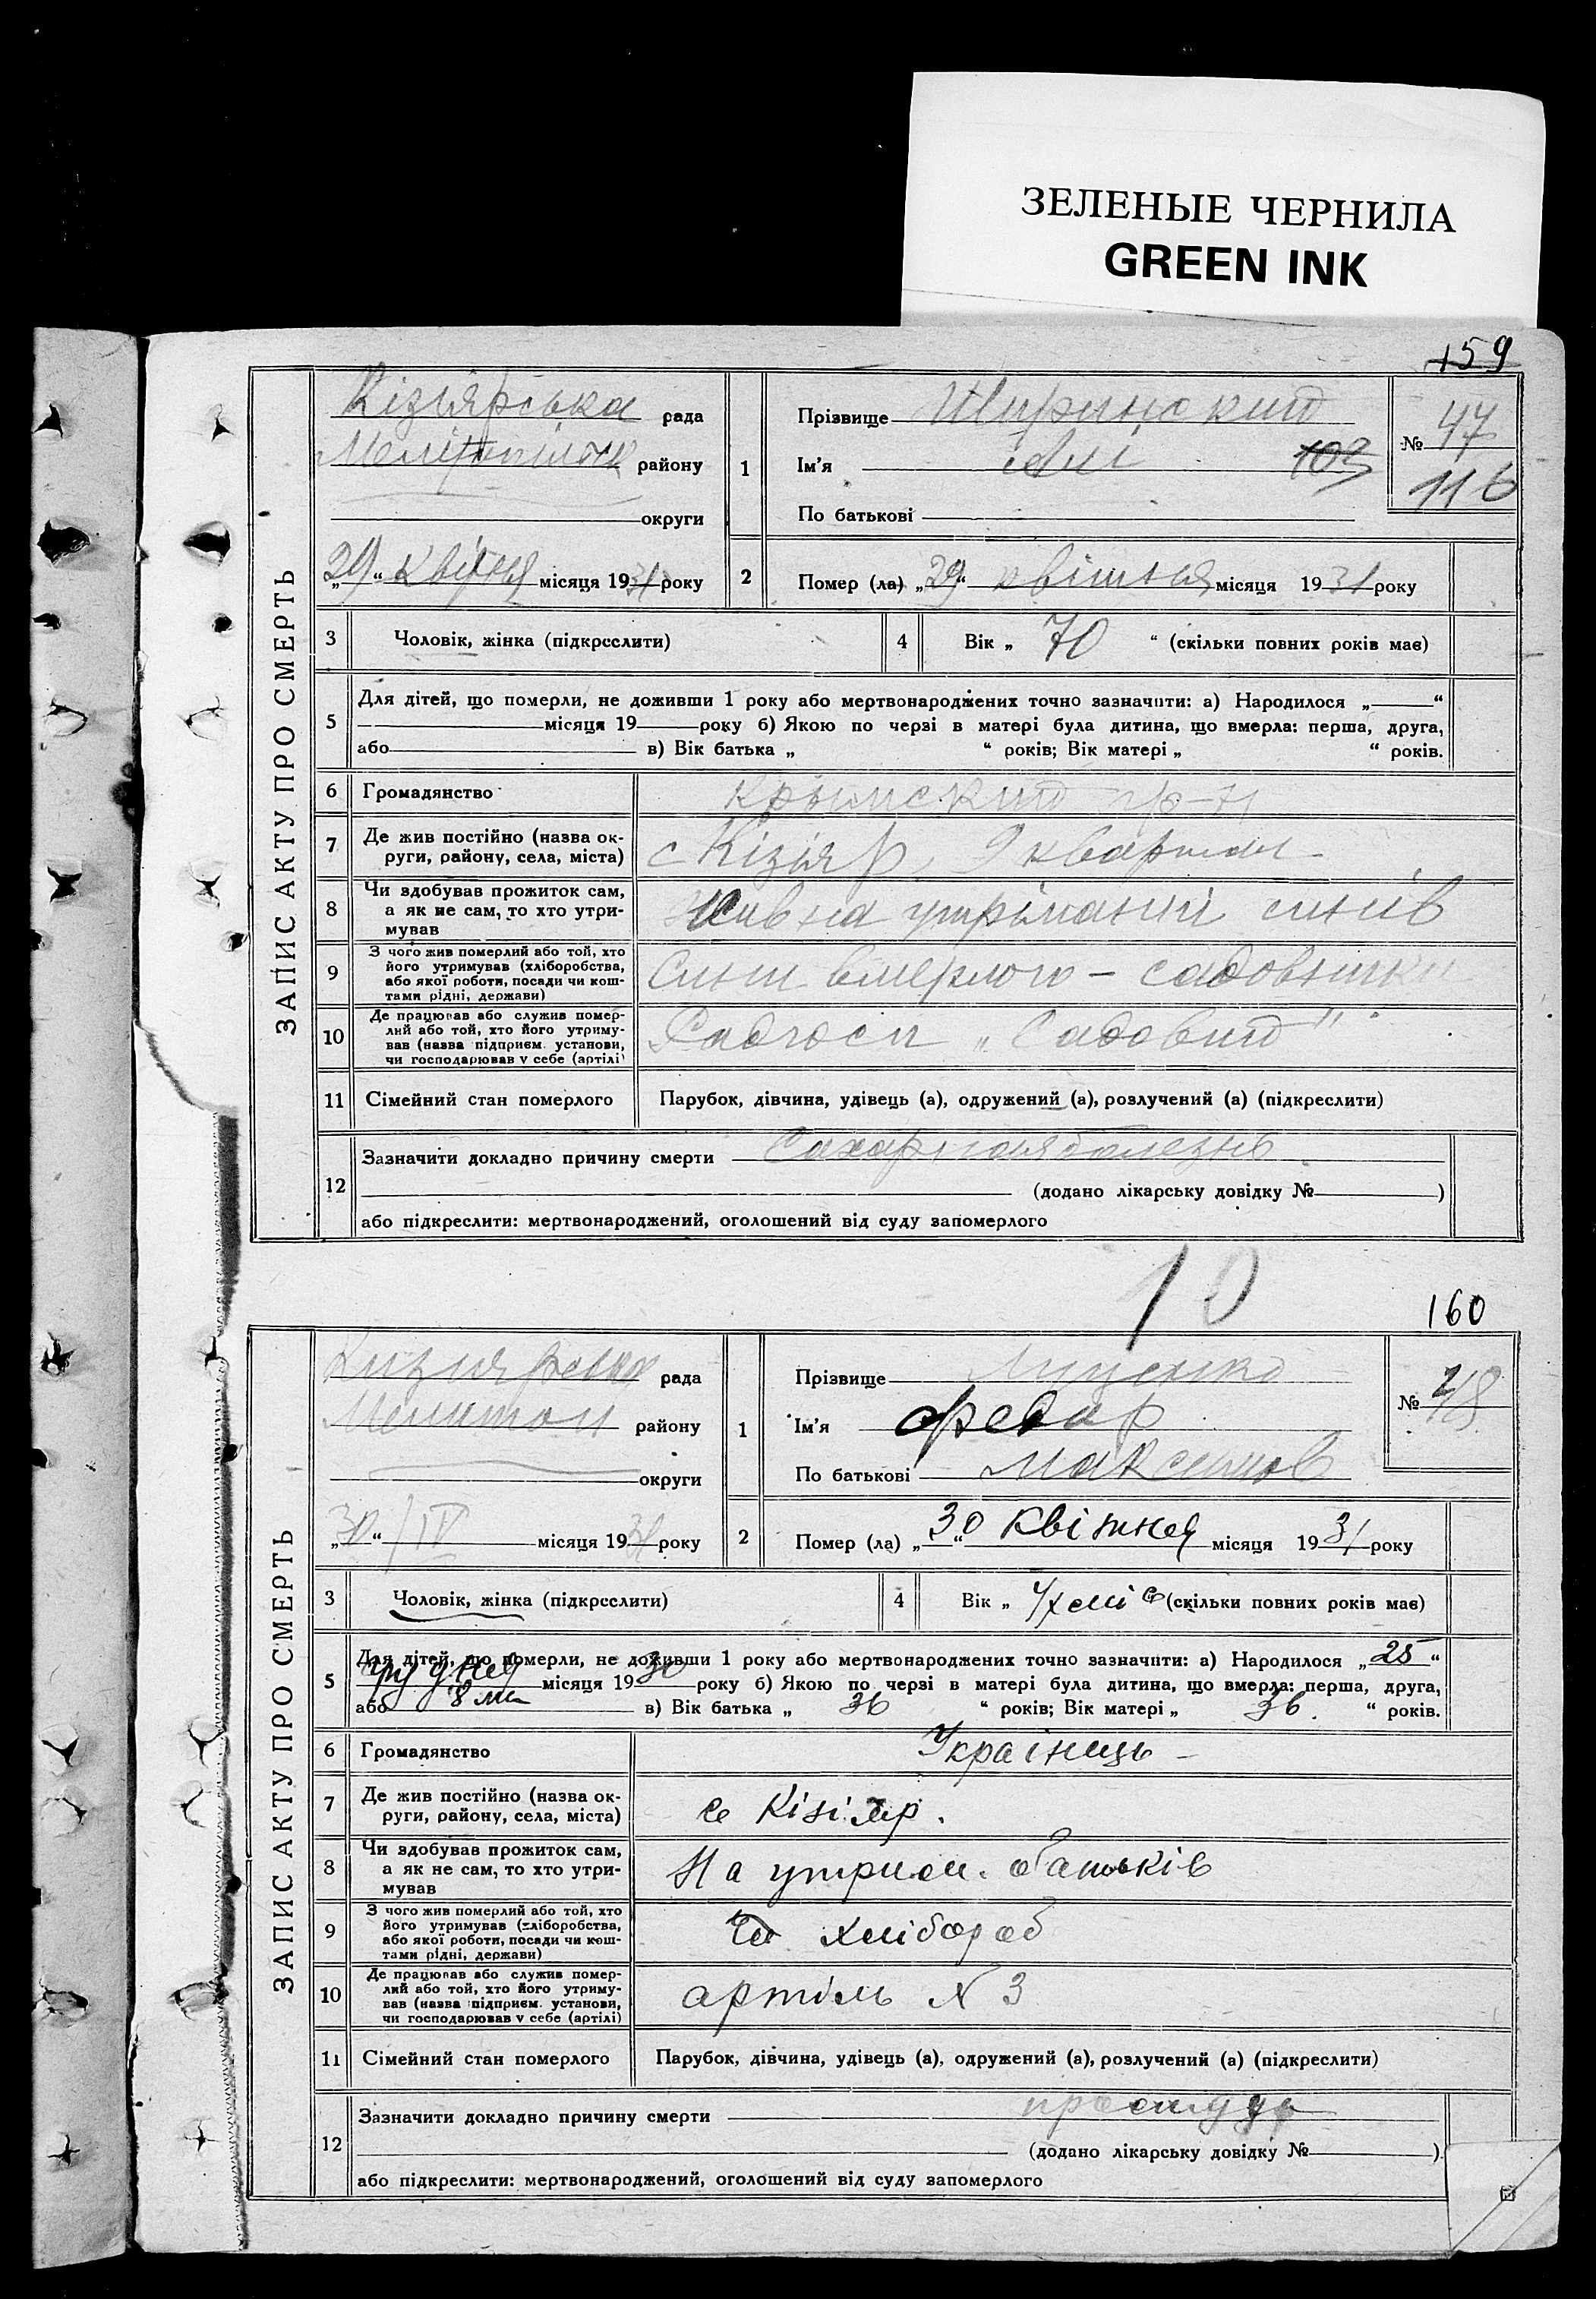 ЗЕЛЕНЫЕ ЧЕРНИЛА
GREEN INK
159
ЗАПИС АКТУ ПРО СМЕРТЬ
Кізіярська рада
району
округи
„29“ квітня місяця 1931 року
1
Прізвище Ширинский
Ім'я Алі 103
По батькові
№ 47
116
2
Помер (ла) „29“ квітня місяця 1931 року
3 Чоловік, жінка (підкреслити)
4 Вік „ 70 “ (скільки повних років має)
5
Для дітей, що померли, не доживши 1 року або мертвонароджених точно зазначити: а) Народилося „ “
місяця 19 року б) Якою по черзі в матері була дитина, що вмерла: перша, друга,
або в) Вік батька „ “ років; Вік матері „ “ років.
6 Громадянство Крымский
7 Де жив постійно (назва ок-
руги, району, села, міста)
с Кізіяр, 9 квартал
8 Чи здобував прожиток сам,
а як не сам, то хто утри-
мував
Жив на утріманні синів
9 З чого жив померлий або той, хто
його утримував (хліборобства,
або якої роботи, посади чи кош-
тами рідні, держави)
Сини вмерлого – садовники
10 Де працював або служив помер-
лий або той, хто його утриму-
вав (назва підприєм. установи,
чи господарював у себе (артілі)
Радгосп „Садовий"
11 Сімейний стан померлого Парубок, дівчина, удівець (а), одружений (а), розлучений (а) (підкреслити)
12
Зазначити докладно причину смерти Сахарная болезнь
(додано лікарську довідку № )
або підкреслити: мертвонароджений, оголошений від суду запомерлого
10
160
ЗАПИС АКТУ ПРО СМЕРТЬ
рада
району
округи
„30“ /IV місяця 1931 року
1
Прізвище Луценко
Ім'я Федор
По батькові
№ 48
2
Помер (ла) „30“ квітня місяця 1931 року
3 Чоловік, жінка (підкреслити)
4 Вік „ (скільки повних років має)
5
Для дітей, що померли, не доживши 1 року або мертвонароджених точно зазначити: а) Народилося „25“
грудня місяця 1930 року б) Якою по черзі в матері була дитина, що вмерла: перша, друга,
або 8 ма в) Вік батька „ 36 “ років; Вік матері „ 36 “ років.
6 Громадянство Українець –
7 Де жив постійно (назва ок-
руги, району, села, міста)
с Кізіяр.
8 Чи здобував прожиток сам,
а як не сам, то хто утри-
мував
На утрим. батьків
9 З чого жив померлий або той, хто
його утримував (хліборобства,
або якої роботи, посади чи кош-
тами рідні, держави)
хлібороб
10 Де працював або служив помер-
лий або той, хто його утриму-
вав (назва підприєм. установи,
чи господарював у себе (артілі)
артіль N 3
11 Сімейний стан померлого Парубок, дівчина, удівець (а), одружений (а), розлучений (а) (підкреслити)
12
Зазначити докладно причину смерти простуда
(додано лікарську довідку № )
або підкреслити: мертвонароджений, оголошений від суду запомерлого